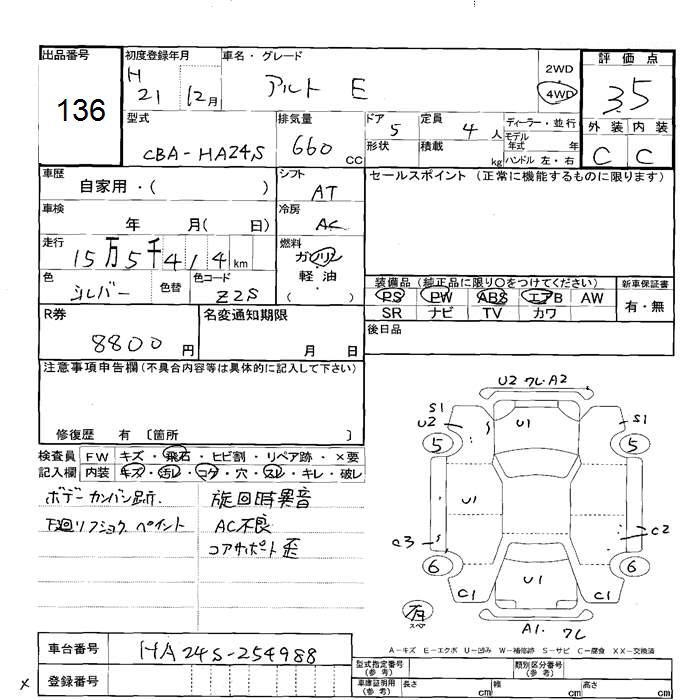 出品番号
136
初度登録年月
H 21 12月
車名・グレード
アルト E
2WD
4WD
評価点
3.5
外装 内装
C C
型式
CBA-HA24S
排気量
660 CC
ドア 5
形状
定員 4 人
積載 kg
ディーラー・並行
モデル年式 年
ハンドル 左・右
車歴
自家用・( )
シフト
AT
セールスポイント (正常に機能するものに限ります)
車検
年 月( 日)
冷房
AC
走行
15万5千414km
燃料
ガソリン
軽・油
( )
色
シルバー
色替
色コード
Z2S
装備品 (純正品に限り○をつけてください)
PS PW ABS エアB AW
SR ナビ TV カワ
新車保証書
有・無
R券
8800 円
名変通知期限
月 日
後日品
注意事項申告欄(不具合内容等は具体的に記入して下さい)
修復歴 有 〔箇所 〕
検査員記入欄
FW キズ・飛石・ヒビ割・リペア跡・×要
内装 キズ・汚レ・コゲ・穴・スレ・キレ・破レ
ボデーカンバン跡.
下廻リフショク ペイント
旋回時異音
AC不良
コアサポート歪
U2 ワレ A2
S1
U2
U1
S1
5
5
U1
C3
C2
6
6
C1
U1
C1
有
スペア
A1. ワレ
A-キズ E-エクボ U-凹み W-補修跡 S-サビ C-腐食 XX-交換済
車台番号
HA24S-254988
×
登録番号
型式指定番号
(参考)
類別区分番号
(参考)
車庫証明用
(参考)
長さ cm
幅 cm
高さ cm